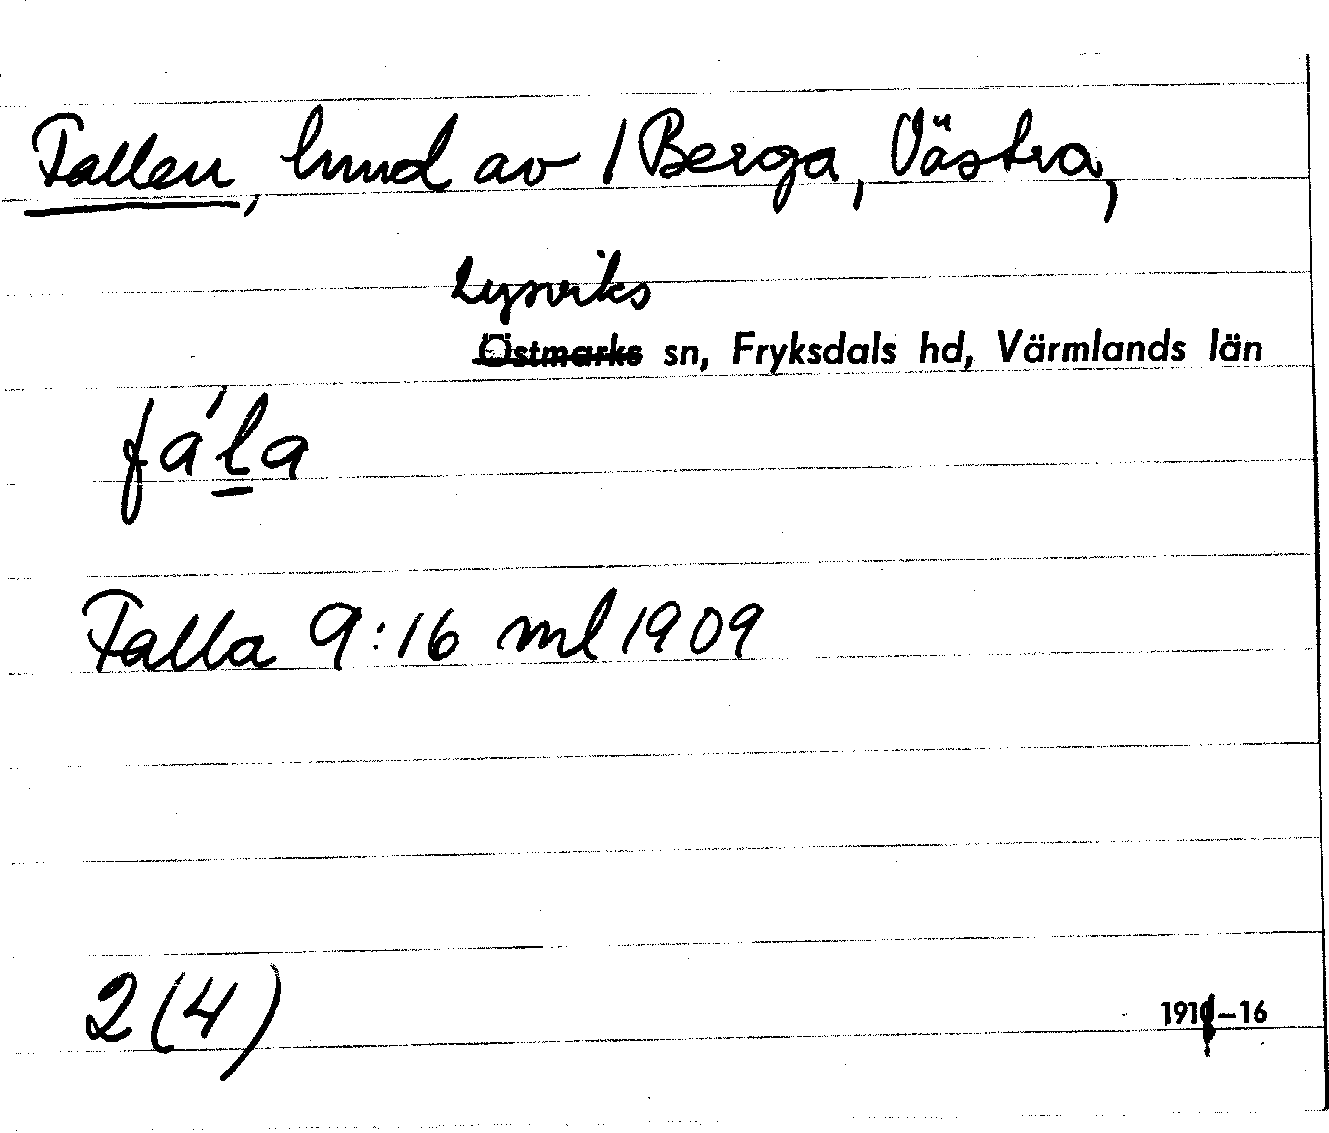 Fallen, hmd av 1 Berga, Västra,
Lysviks
Östmarks sn, Fryksdals hd, Värmlands län
fáḻa
Falla 9:16 ml 1909
2 (4)
1911–16